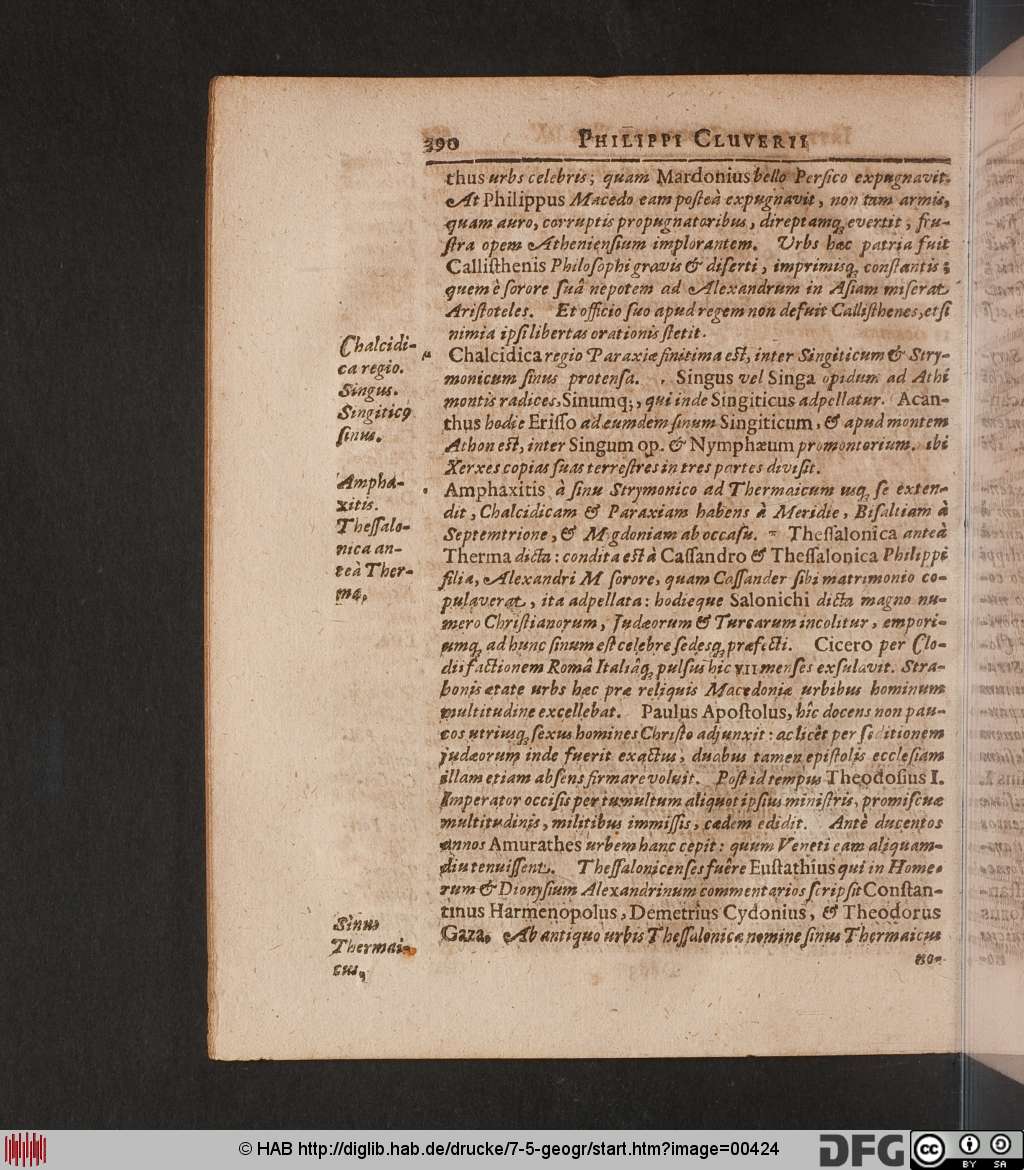 390
PHILIPPI CLUVERII
thus urbs celebris; quam Mardonius bello Persico expugnavit.
At Philippus Macedo eam posteà expugnavit, non tam armis,
quam auro, corruptis propugnatoribus, direptamq́; evertit, fru-
stra opem Atheniensium implorantem. Urbs hæc patria fuit
Callisthenis Philosophi gravis & diserti, imprimisq́; constantis;
quem è sorore suâ nepotem ad Alexandrum in Asiam miserat
Aristoteles. Et officio suo apud regem non defuit Callisthenes, etsi
nimia ipsi libertas orationis stetit.
Chalcidica regio Paraxiæ finitima est, inter Singiticum & Stry-
monicum sinus protensa. Singus vel Singa opidum ad Athi
montis radices, Sinumq;, qui inde Singiticus adpellatur. Acan-
thus hodie Erisso ad eumdem sinum Singiticum, & apud montem
Athon est, inter Singum op. & Nymphæum promontorium. ibi
Xerxes copias suas terrestres in tres partes divisit.
Amphaxitis à sinu Strymonico ad Thermaicum usq; se exten-
dit, Chalcidicam & Paraxiam habens à Meridie, Bisaltiam à
Septemtrione, & Mygdoniam ab occasu. Thessalonica anteà
Therma dicta: condita est à Cassandro & Thessalonica Philippi
filia, Alexandri M sorore, quam Cassander sibi matrimonio co-
pulaverat, ita adpellata: hodieque Salonichi dicta magno nu-
mero Christianorum, Judæorum & Turcarum incolitur, empori-
umq; ad hunc sinum est celebre sedesq; præfecti. Cicero per Clo-
dii factionem Româ Italiâq; pulsus hic VII menses exsulavit. Stra-
bonis ætate urbs hæc præ reliquis Macedoniæ urbibus hominum
multitudine excellebat. Paulus Apostolus, hîc docens non pau-
cos utriusq; sexus homines Christo adjunxit: ac licêt per seditionem
judæorum inde fuerit exactus, duabus tamen epistolis ecclesiam
illam etiam absens firmare voluit. Post id tempus Theodosius I.
Imperator occisis per tumultum aliquot ipsius ministris, promiscuæ
multitudinis, militibus immissis, cædem edidit. Antè ducentos
annos Amurathes urbem hanc cepit: quum Veneti eam aliquam-
diu tenuissent. Thessalonicenses fuêre Eustathius qui in Home-
rum & Dionysium Alexandrinum commentarios scripsit Constan-
tinus Harmenopolus, Demetrius Cydonius, & Theodorus
Gaza. Ab antiquo urbis Thessalonicæ nomine sinus Thermaicus
no-
Chalcidi-
ca regio.
Singus.
Singiticꝰ
sinus.
Ampha-
xitis.
Thessalo-
nica an-
teà Ther-
ma.
Sinus
Thermai-
cus,
© HAB http://diglib.hab.de/drucke/7-5-geogr/start.htm?image=00424
DFG
cc
BY SA